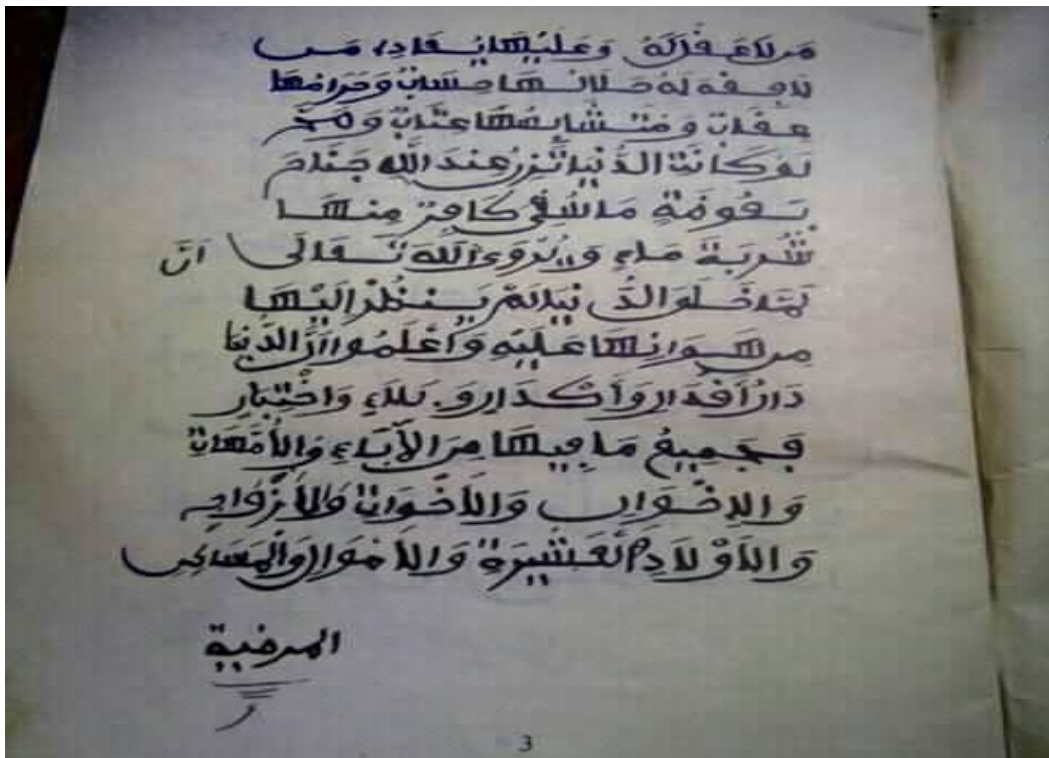 مَن لاَ عَقْلَ لَهُ وَعَلَيْهَا يُعَادِي مَن
لاَ فِقْهَ لَهُ حَلَالُهَا حِسَابٌ وَحَرَامُهَا
عِقَابٌ وَمُتَشَابِهُهَا عِتَابٌ
لَوْ كَانَتْ الدُّنْيَا تَزِنُ عِنْدَ اللَّهِ جَنَاحَ
بَعُوضَةٍ مَا سُقِيَ كَافِرٌ مِنْهَا
شُرْبَةَ مَاءٍ وَيُرْوَى اللَّهَ تَعَالَى أَنَّ
لَمَّا خَلَقَ الدُّنْيَا لَمْ يَنْظُرْ إِلَيْهَا
مِن هَوَانِهَا عَلَيْهِ وَاعْلَمُوا أَنَّ الدُّنْيَا
دَارُ أَقْدَارٍ وَأَكْدَارٍ وَبَلَاءٍ وَاخْتِبَارٍ
فَجَمِيعُ مَا فِيهَا مِنَ الْأَبَاءِ وَالْأُمَّهَاتِ
وَالْإِخْوَانِ وَالْأَخْوَاتِ وَالْأَزْوَاجِ
وَالْأَوْلَادِ وَالْعَشِيرَةِ وَالْأَمْوَالِ وَالْمَسَاكِنِ
المرضية
3